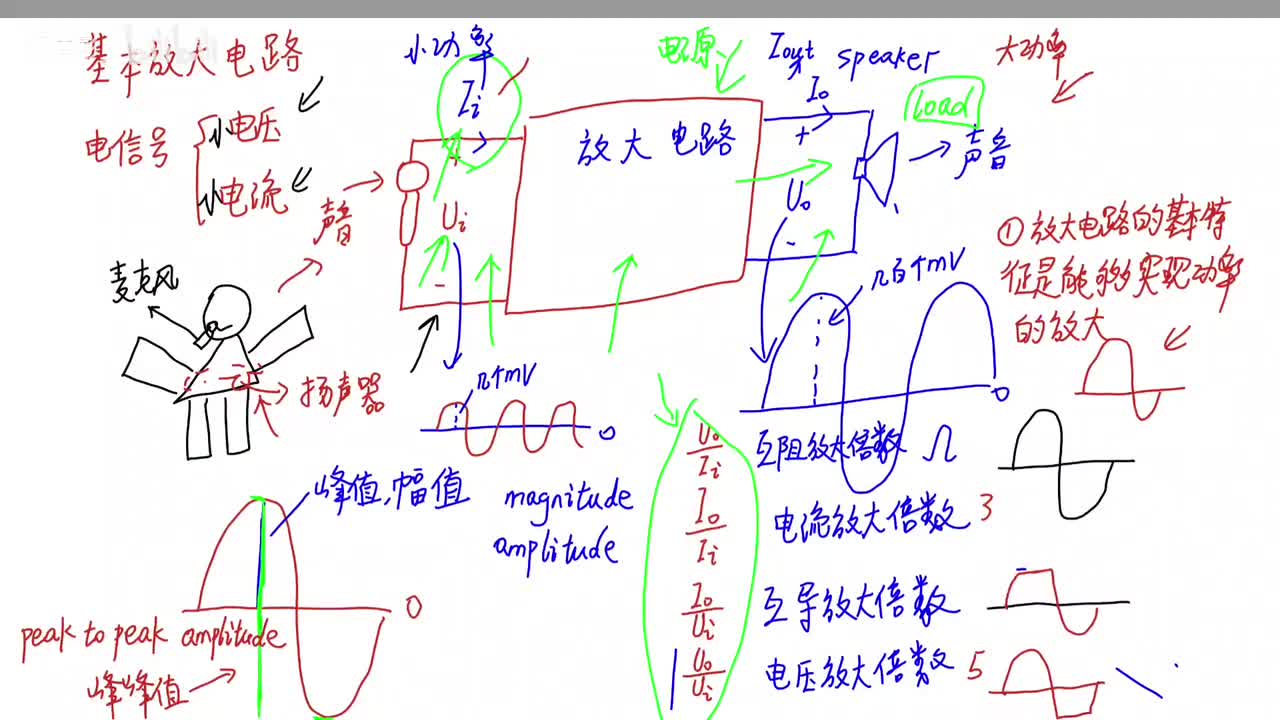 基本放大电路
电信号
小电压
小电流
小功率
Ii
+
Ui
-
声音
麦克风
扬声器
放大电路
电源
Iout
speaker
Io
+
Uo
-
Load
声音
大功率
①放大电路的基本特
征是能够实现功率
的放大
几百个mV
几个mV
0
0
峰值,幅值
magnitude
amplitude
0
peak to peak amplitude
峰峰值
Uo/Ii 互阻放大倍数 Ω
Io/Ii 电流放大倍数 3
Io/Ui 互导放大倍数
Uo/Ui 电压放大倍数 5